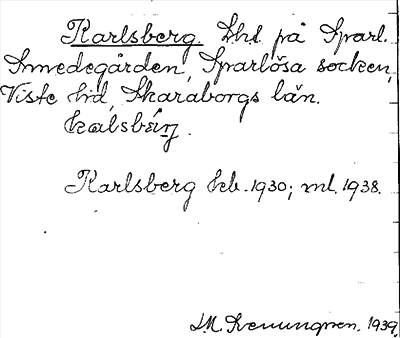 Karlsberg. Lht på Sparl.
Smedegården, Sparlösa socken,
Viste hd, Skaraborgs län.
kalsbärj.
Karlsberg kb. 1930; ml. 1938.
1939.